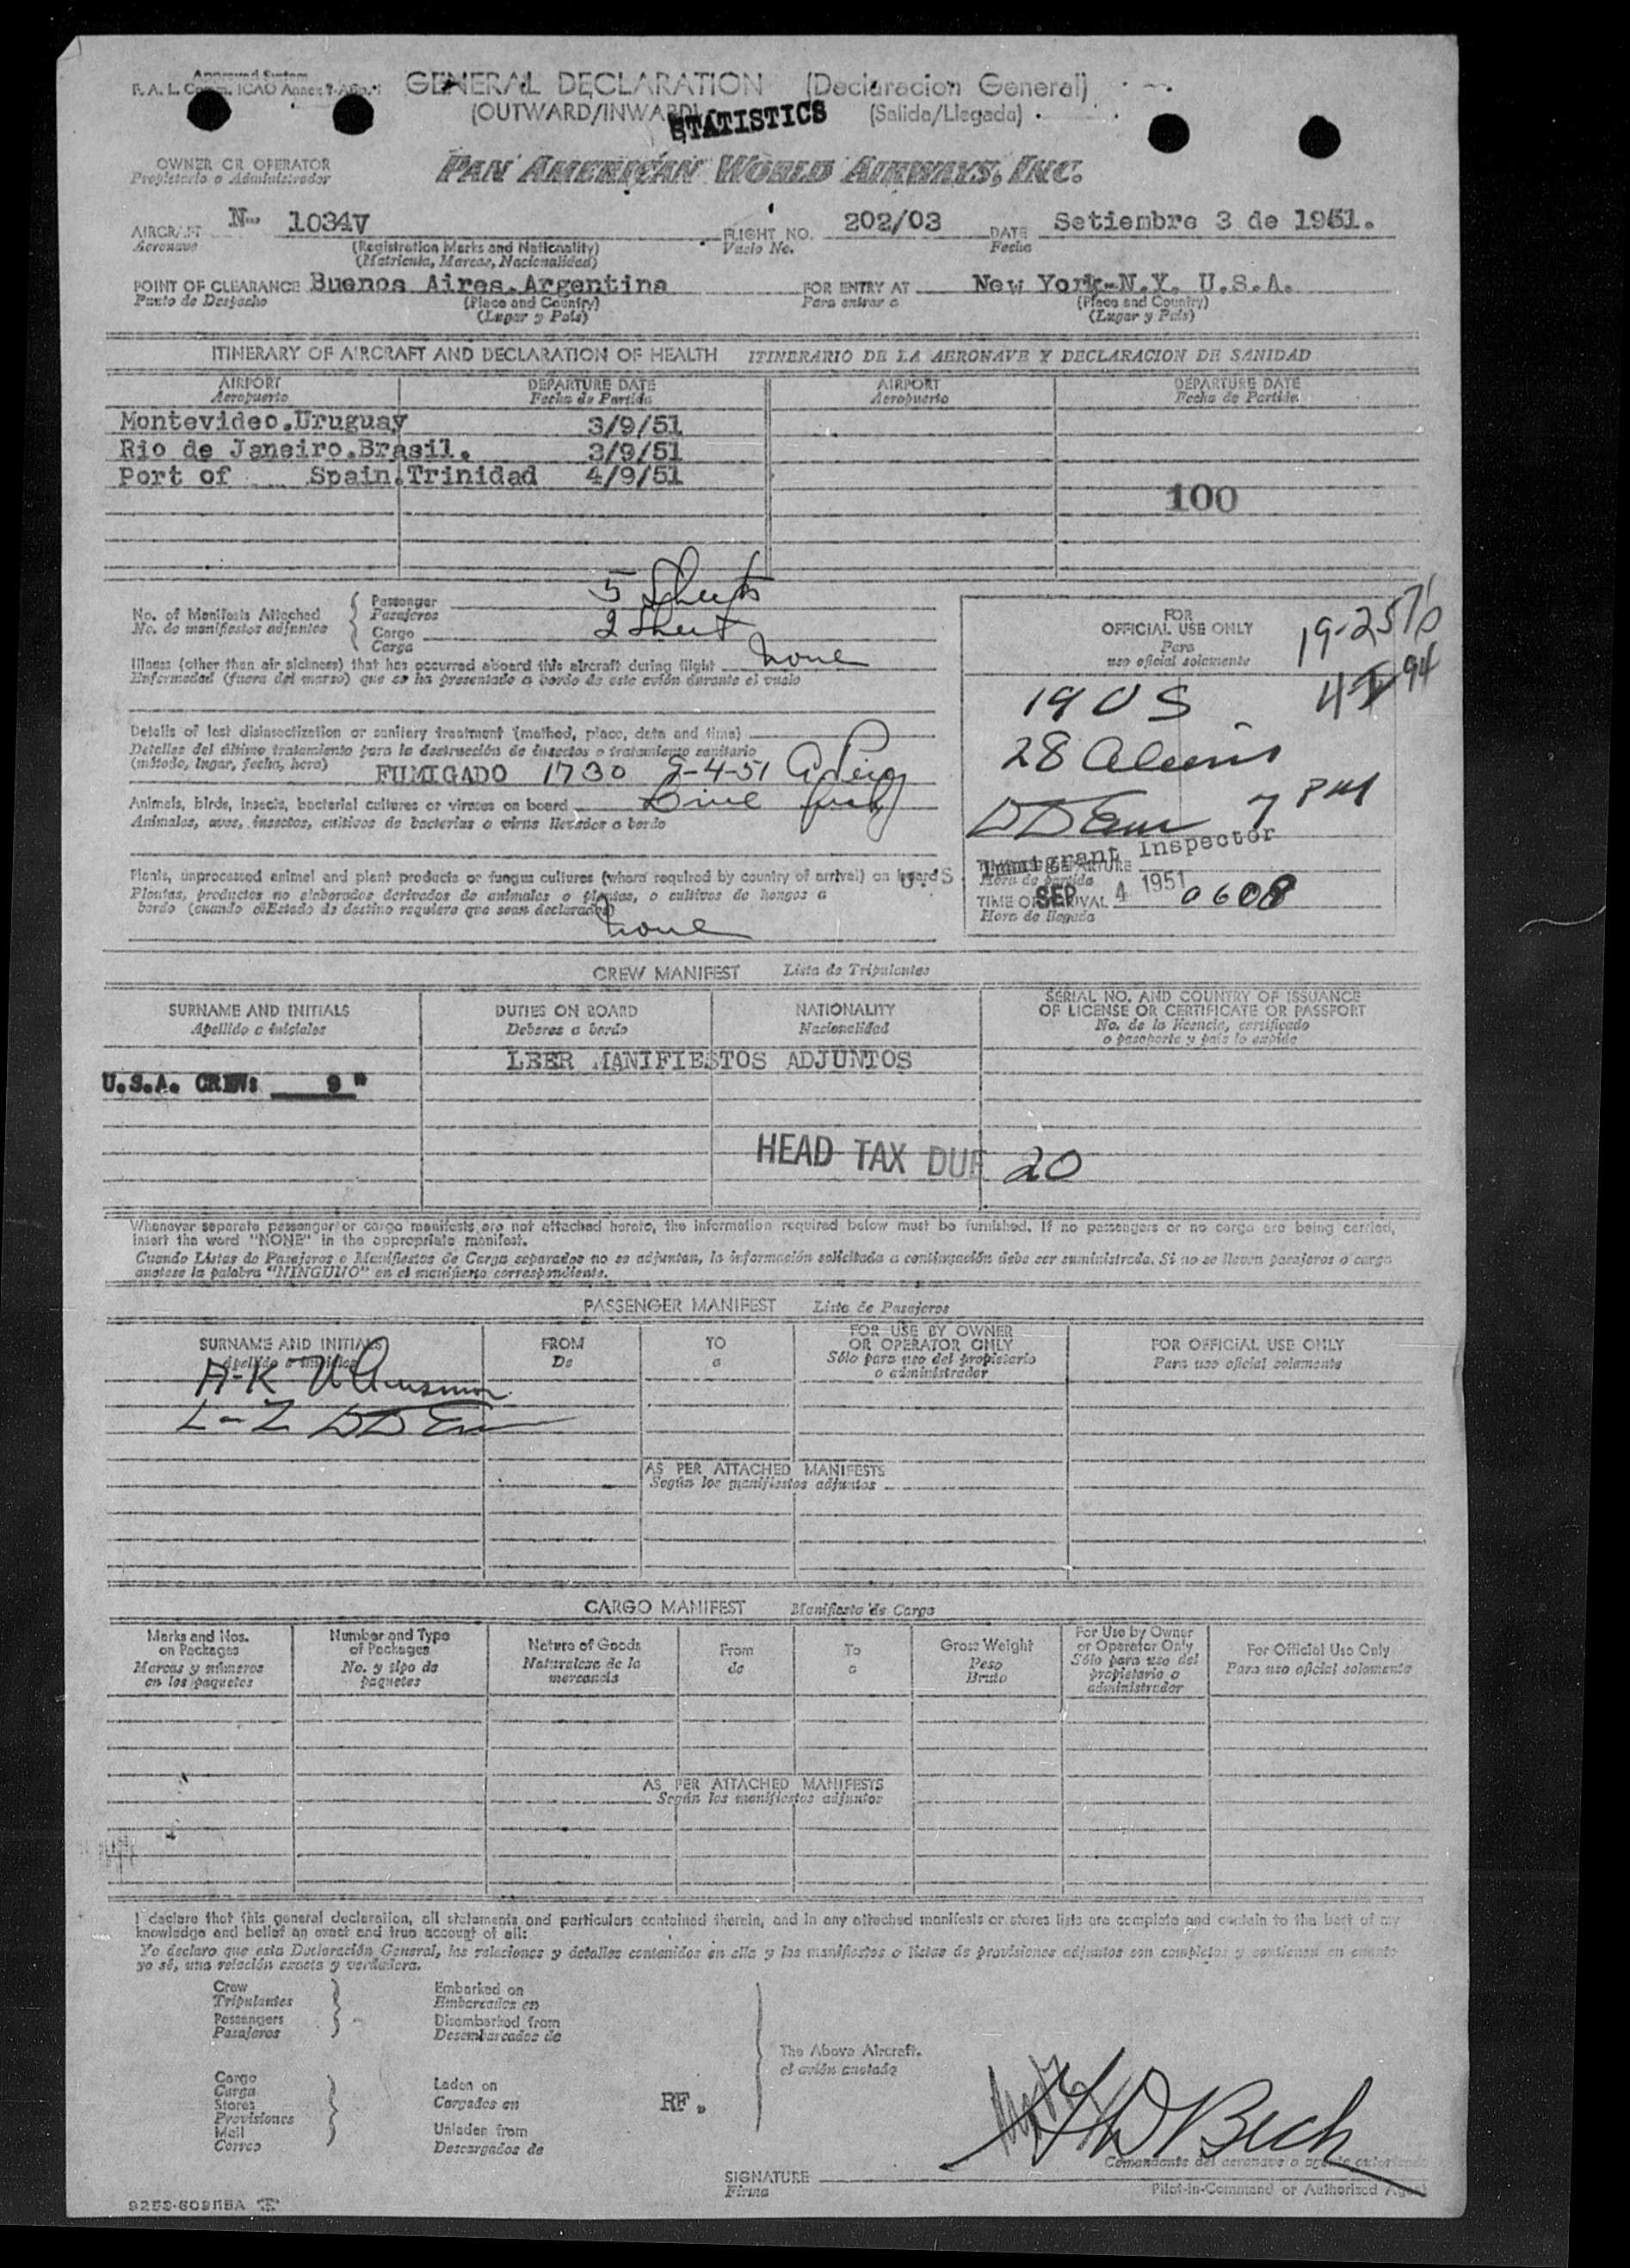 Approved System
F. A. L. Comm. ICAO Annex 9-App. 1
GENERAL DECLARATION (Declaracion General)
(OUTWARD/INWARD) (Salida/Llegada)
STATISTICS
OWNER OR OPERATOR
Propietario o Administrador
PAN AMERICAN WORLD AIRWAYS, INC.
AIRCRAFT N- 1034V FLIGHT NO. 202/03 DATE Setiembre 3 de 1951.
Aeronave (Registration Marks and Nationality) Vuelo No. Fecha
(Matricula, Marcas, Nacionalidad)
POINT OF CLEARANCE Buenos Aires.Argentina FOR ENTRY AT New York-N.Y. U.S.A.
Punto de Despacho (Place and Country) Para entrar a (Place and Country)
(Lugar y País) (Lugar y País)
ITINERARY OF AIRCRAFT AND DECLARATION OF HEALTH ITINERARIO DE LA AERONAVE Y DECLARACION DE SANIDAD
AIRPORT DEPARTURE DATE AIRPORT DEPARTURE DATE
Aeropuerto Fecha de Partida Aeropuerto Fecha de Partida
Montevideo.Uruguay 3/9/51
Rio de Janeiro.Brasil. 3/9/51
Port of Spain.Trinidad 4/9/51
100
No. of Manifests Attached
No. de manifiestos adjuntos
Passenger 5 Sheets
Pasajeros
Cargo 2 Sheet
Carga
Illness (other than air sickness) that has occurred aboard this aircraft during flight none
Enfermedad (fuera del mareo) que se ha presentado a bordo de este avión durante el vuelo
Details of last disinsectization or sanitary treatment (method, place, date and time)
Detalles del último tratamiento para la destrucción de insectos o tratamiento sanitario
(método, lugar, fecha, hora)
FUMIGADO 1730 9-4-51
Animals, birds, insects, bacterial cultures or viruses on board Live
Animales, aves, insectos, cultivos de bacterias o virus llevados a bordo
Plants, unprocessed animal and plant products or fungus cultures (where required by country of arrival) on board
Plantas, productos no elaborados derivados de animales o plantas, o cultivos de hongos a
bordo (cuando el Estado de destino requiere que sean declarados)
none
FOR
OFFICIAL USE ONLY
Para
uso oficial solamente
19 U S
28 Aliens
7 PM
U. S. Immigrant Inspector
TIME OF DEPARTURE
Hora de partida
SEP 4 1951
TIME OF ARRIVAL 0608
Hora de llegada
CREW MANIFEST Lista de Tripulantes
SURNAME AND INITIALS DUTIES ON BOARD NATIONALITY SERIAL NO. AND COUNTRY OF ISSUANCE
OF LICENSE OR CERTIFICATE OR PASSPORT
Apellido e iniciales Deberes a bordo Nacionalidad No. de la licencia, certificado
o pasaporte y país lo expide
LEER MANIFIESTOS ADJUNTOS
U.S.A. CREW: 9 "
HEAD TAX DUE 20
Whenever separate passenger or cargo manifests are not attached hereto, the information required below must be furnished. If no passengers or no cargo are being carried,
insert the word "NONE" in the appropriate manifest.
Cuando Listas de Pasajeros o Manifiestos de Carga separados no se adjuntan, la información solicitada a continuación debe ser suministrada. Si no se llevan pasajeros o carga
anótese la palabra "NINGUNO" en el manifiesto correspondiente.
PASSENGER MANIFEST Lista de Pasajeros
SURNAME AND INITIALS FROM TO FOR USE BY OWNER
OR OPERATOR ONLY FOR OFFICIAL USE ONLY
Apellido e iniciales De a Sólo para uso del propietario
o administrador Para uso oficial solamente
A-K
L-Z
AS PER ATTACHED MANIFESTS
Según los manifiestos adjuntos
CARGO MANIFEST Manifiesto de Carga
Marks and Nos.
on Packages
Marcas y números
en los paquetes
Number and Type
of Packages
No. y tipo de
paquetes
Nature of Goods
Naturaleza de la
mercancía
From
de
To
a
Gross Weight
Peso
Bruto
For Use by Owner
or Operator Only
Sólo para uso del
propietario o
administrador
For Official Use Only
Para uso oficial solamente
AS PER ATTACHED MANIFESTS
Según los manifiestos adjuntos
I declare that this general declaration, all statements and particulars contained therein, and in any attached manifests or stores lists are complete and contain to the best of my
knowledge and belief an exact and true account of all:
Yo declaro que esta Declaración General, las relaciones y detalles contenidos en ella y los manifiestos o listas de provisiones adjuntos son completos y contienen en cuanto
yo sé, una relación exacta y verdadera.
Crew
Tripulantes
Passengers
Pasajeros
Embarked on
Embarcados en
Disembarked from
Desembarcados de
The Above Aircraft.
el avión anotado
Cargo
Carga
Stores
Provisiones
Mail
Correo
Laden on
Cargados en
Unladen from
Descargados de
RF.
SIGNATURE
Firma
Comandante del aeronave o agente autorizado
Pilot-in-Command or Authorized Agent